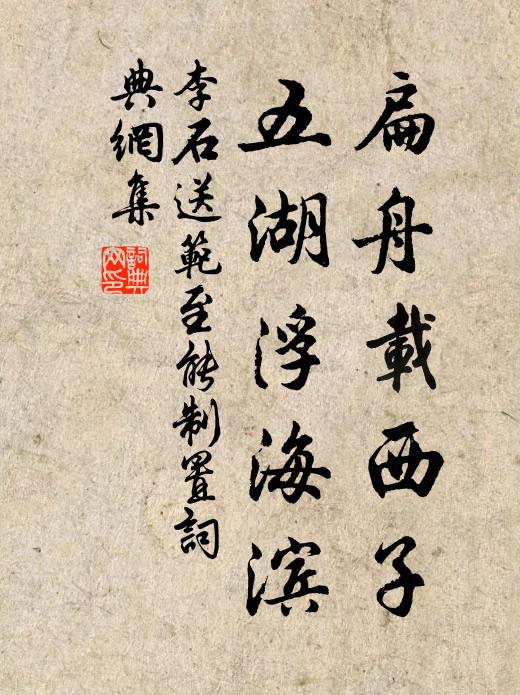 扁舟載西子
五湖浮海滨
李石送範至能制置詞
典網集
詞典網印